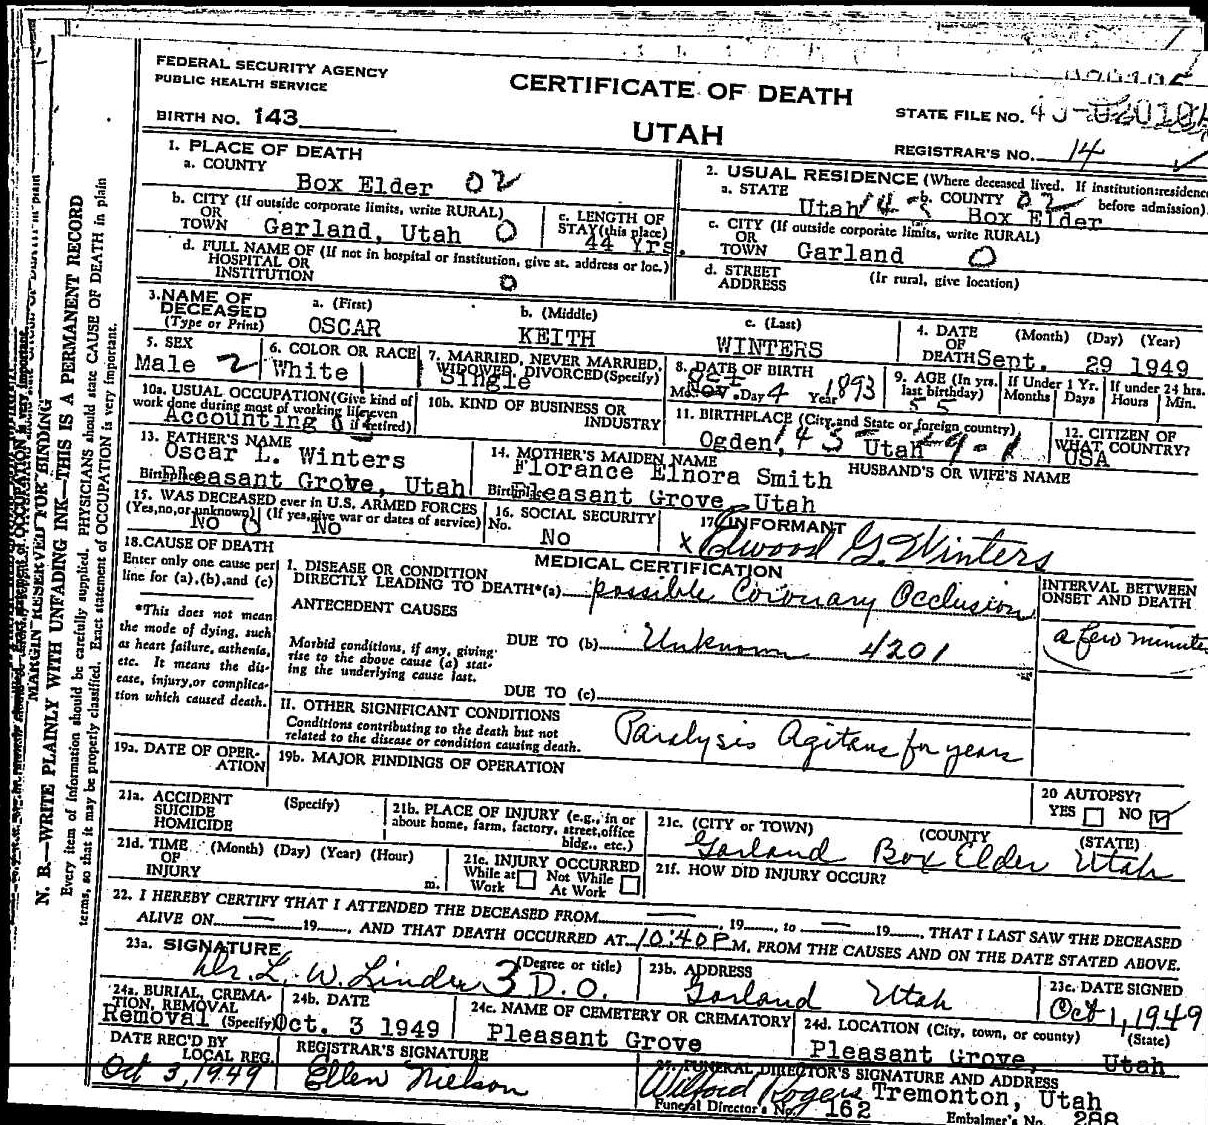 FEDERAL SECURITY AGENCY
PUBLIC HEALTH SERVICE
CERTIFICATE OF DEATH
STATE FILE NO.
BIRTH NO. 143
UTAH
REGISTRAR'S NO. 14
1. PLACE OF DEATH
a. COUNTY
Box Elder 02
2. USUAL RESIDENCE (Where deceased lived. If institution: residence before admission).
a. STATE Utah b. COUNTY Box Elder
b. CITY (If outside corporate limits, write RURAL)
OR TOWN Garland, Utah 0
c. LENGTH OF STAY (this place)
44 Yrs.
c. CITY (If outside corporate limits, write RURAL)
OR TOWN Garland 0
d. FULL NAME OF (If not in hospital or institution, give st. address or loc.)
HOSPITAL OR INSTITUTION 0
d. STREET ADDRESS (If rural, give location)
3. NAME OF DECEASED (Type or Print)
a. (First) OSCAR
b. (Middle) KEITH
c. (Last) WINTERS
4. DATE OF DEATH (Month) (Day) (Year)
Sept. 29 1949
5. SEX
Male 2
6. COLOR OR RACE
White
7. MARRIED, NEVER MARRIED, WIDOWED, DIVORCED (Specify)
Single
8. DATE OF BIRTH
Mo. Nov. Day 4 Year 1893
9. AGE (In yrs. last birthday)
55
If Under 1 Yr. Months Days
If under 24 hrs. Hours Min.
10a. USUAL OCCUPATION (Give kind of work done during most of working life, even if retired)
Accounting
10b. KIND OF BUSINESS OR INDUSTRY
11. BIRTHPLACE (City and State or foreign country)
Ogden, Utah
12. CITIZEN OF WHAT COUNTRY?
USA
13. FATHER'S NAME
Oscar L. Winters
Birthplace Pleasant Grove, Utah
14. MOTHER'S MAIDEN NAME
Florance Elnora Smith
Birthplace Pleasant Grove, Utah
HUSBAND'S OR WIFE'S NAME
15. WAS DECEASED ever in U.S. ARMED FORCES
(Yes, no, or unknown) (If yes, give war or dates of service)
No 0 No
16. SOCIAL SECURITY No.
No
17. INFORMANT
x Elwood G. Winters
18. CAUSE OF DEATH
Enter only one cause per line for (a), (b), and (c)
*This does not mean
the mode of dying, such
as heart failure, asthenia,
etc. It means the dis-
ease, injury, or complica-
tion which caused death.
MEDICAL CERTIFICATION
I. DISEASE OR CONDITION
DIRECTLY LEADING TO DEATH*(a) possible Coronary Occlusion
INTERVAL BETWEEN ONSET AND DEATH
a few minutes
ANTECEDENT CAUSES
Morbid conditions, if any, giving
rise to the above cause (a) stat-
ing the underlying cause last.
DUE TO (b) Unknown 4201
DUE TO (c)
II. OTHER SIGNIFICANT CONDITIONS
Conditions contributing to the death but not
related to the disease or condition causing death.
Paralysis Agitans for years
19a. DATE OF OPERATION
19b. MAJOR FINDINGS OF OPERATION
20 AUTOPSY?
YES NO
21a. ACCIDENT (Specify)
SUICIDE
HOMICIDE
21b. PLACE OF INJURY (e.g., in or
about home, farm, factory, street, office
bldg., etc.)
21c. (CITY or TOWN) (COUNTY (STATE)
Garland Box Elder Utah
21d. TIME OF INJURY (Month) (Day) (Year) (Hour)
m.
21e. INJURY OCCURRED
While at Work Not While At Work
21f. HOW DID INJURY OCCUR?
22. I HEREBY CERTIFY THAT I ATTENDED THE DECEASED FROM , 19 , to 19 , THAT I LAST SAW THE DECEASED
ALIVE ON 19 , AND THAT DEATH OCCURRED AT 10:40 P M. FROM THE CAUSES AND ON THE DATE STATED ABOVE.
23a. SIGNATURE (Degree or title)
Dr. L. W. Linder 3 D.O.
23b. ADDRESS
Garland Utah
23c. DATE SIGNED
Oct 1, 1949
24a. BURIAL, CREMATION, REMOVAL (Specify)
Removal
24b. DATE
Oct. 3 1949
24c. NAME OF CEMETERY OR CREMATORY
Pleasant Grove
24d. LOCATION (City, town, or county) (State)
Pleasant Grove, Utah
DATE REC'D BY LOCAL REG.
Oct 3, 1949
REGISTRAR'S SIGNATURE
Ellen Nielson
25. FUNERAL DIRECTOR'S SIGNATURE AND ADDRESS
Wilford Rogers Tremonton, Utah
Funeral Director's No. 162 Embalmer's No. 288
MARGIN RESERVED FOR BINDING
N. B.—WRITE PLAINLY WITH UNFADING INK—THIS IS A PERMANENT RECORD
Every item of information should be carefully supplied. PHYSICIANS should state CAUSE OF DEATH in plain
terms, so that it may be properly classified. Exact statement of OCCUPATION is very important.